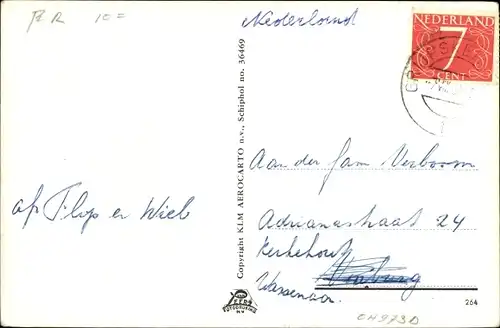 Nederland
NEDERLAND
7
CENT
Copyright KLM AEROCARTO n.v., Schiphol no. 36469
Aan der fam Verboom
Adrianastraat 24
Kerkehout
Wassenaar
af Flop en Wieb
264
CH973D